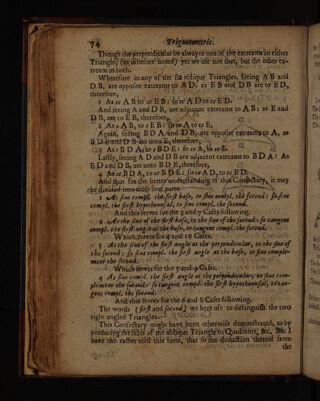 74 Trigonometrie.
Though the perpendicular be alwayes one of the extreams in either
Triangle, (as is before noted) yet we use not that, but the other ex-
tream in both.
Wherefore in any of the six oblique Triangles, seeing A B and
D B, are opposite extreams to A D, as E B and D B are to E D,
therefore,
1 As se A B to se E B: so se A D to se E D.
And seeing A and D B, are adjacent extreams to A B: as E and
D B, are to E B, therefore,
2 As s A B, to s E B:
Again, seeing B D A and D B, are opposite extreams to A, as
B D E and D B are unto E, therefore,
3 As s B D A, to s B D E: so se A, to se E.
Lastly, seeing A D and D B are adjacent extreams to B D A: As
E D and D B, are unto B D E, therefore,
4 As se B D A, to se B D E:
And thus for the better understanding of this Consectary, it may
be divided into these four parts.
1 As sine compl. the first base, to sine compl. the second: so sine
compl. the first hypothenusal, to sine compl. the second.
And this serves for the 3 and 9 Cases following.
2 As the sine of the first base, to the sine of the second: so tangent
compl. the first angle at the base, to tangent compl. the second.
Which serves for 2 and 10 Cases.
3 As the sine of the first angle at the perpendicular, to the sine of
the second: so sine compl. the first angle at the base, to sine comple-
ment the second.
Which serves for the 7 and 9 Cases.
4 As sine compl. the first angle at the perpendicular, to sine com-
plement the second: so tangent compl. the first hypothenusal, to tan-
gent compl. the second.
And this serves for the 6 and 8 Cases following.
The words (first and second) we here use to distinguish the two
right angled Triangles.
This Consectary might have been otherwise demonstrated, as by
producing the sides of the oblique Triangle to Quadrants, &c. But I
have the rather used this form, that so the deduction thereof from
the